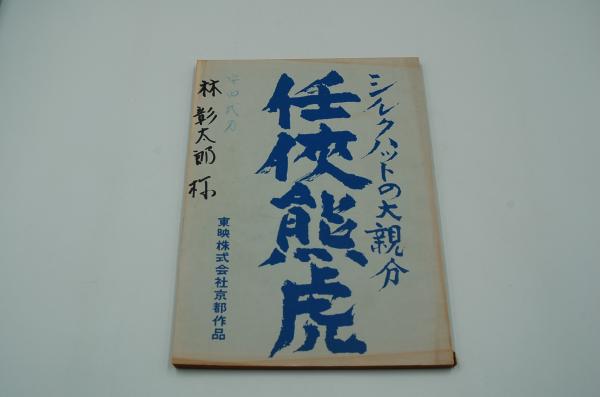 シルクハットの大親分
任侠熊虎
東映株式会社京都作品
林彰太郎様